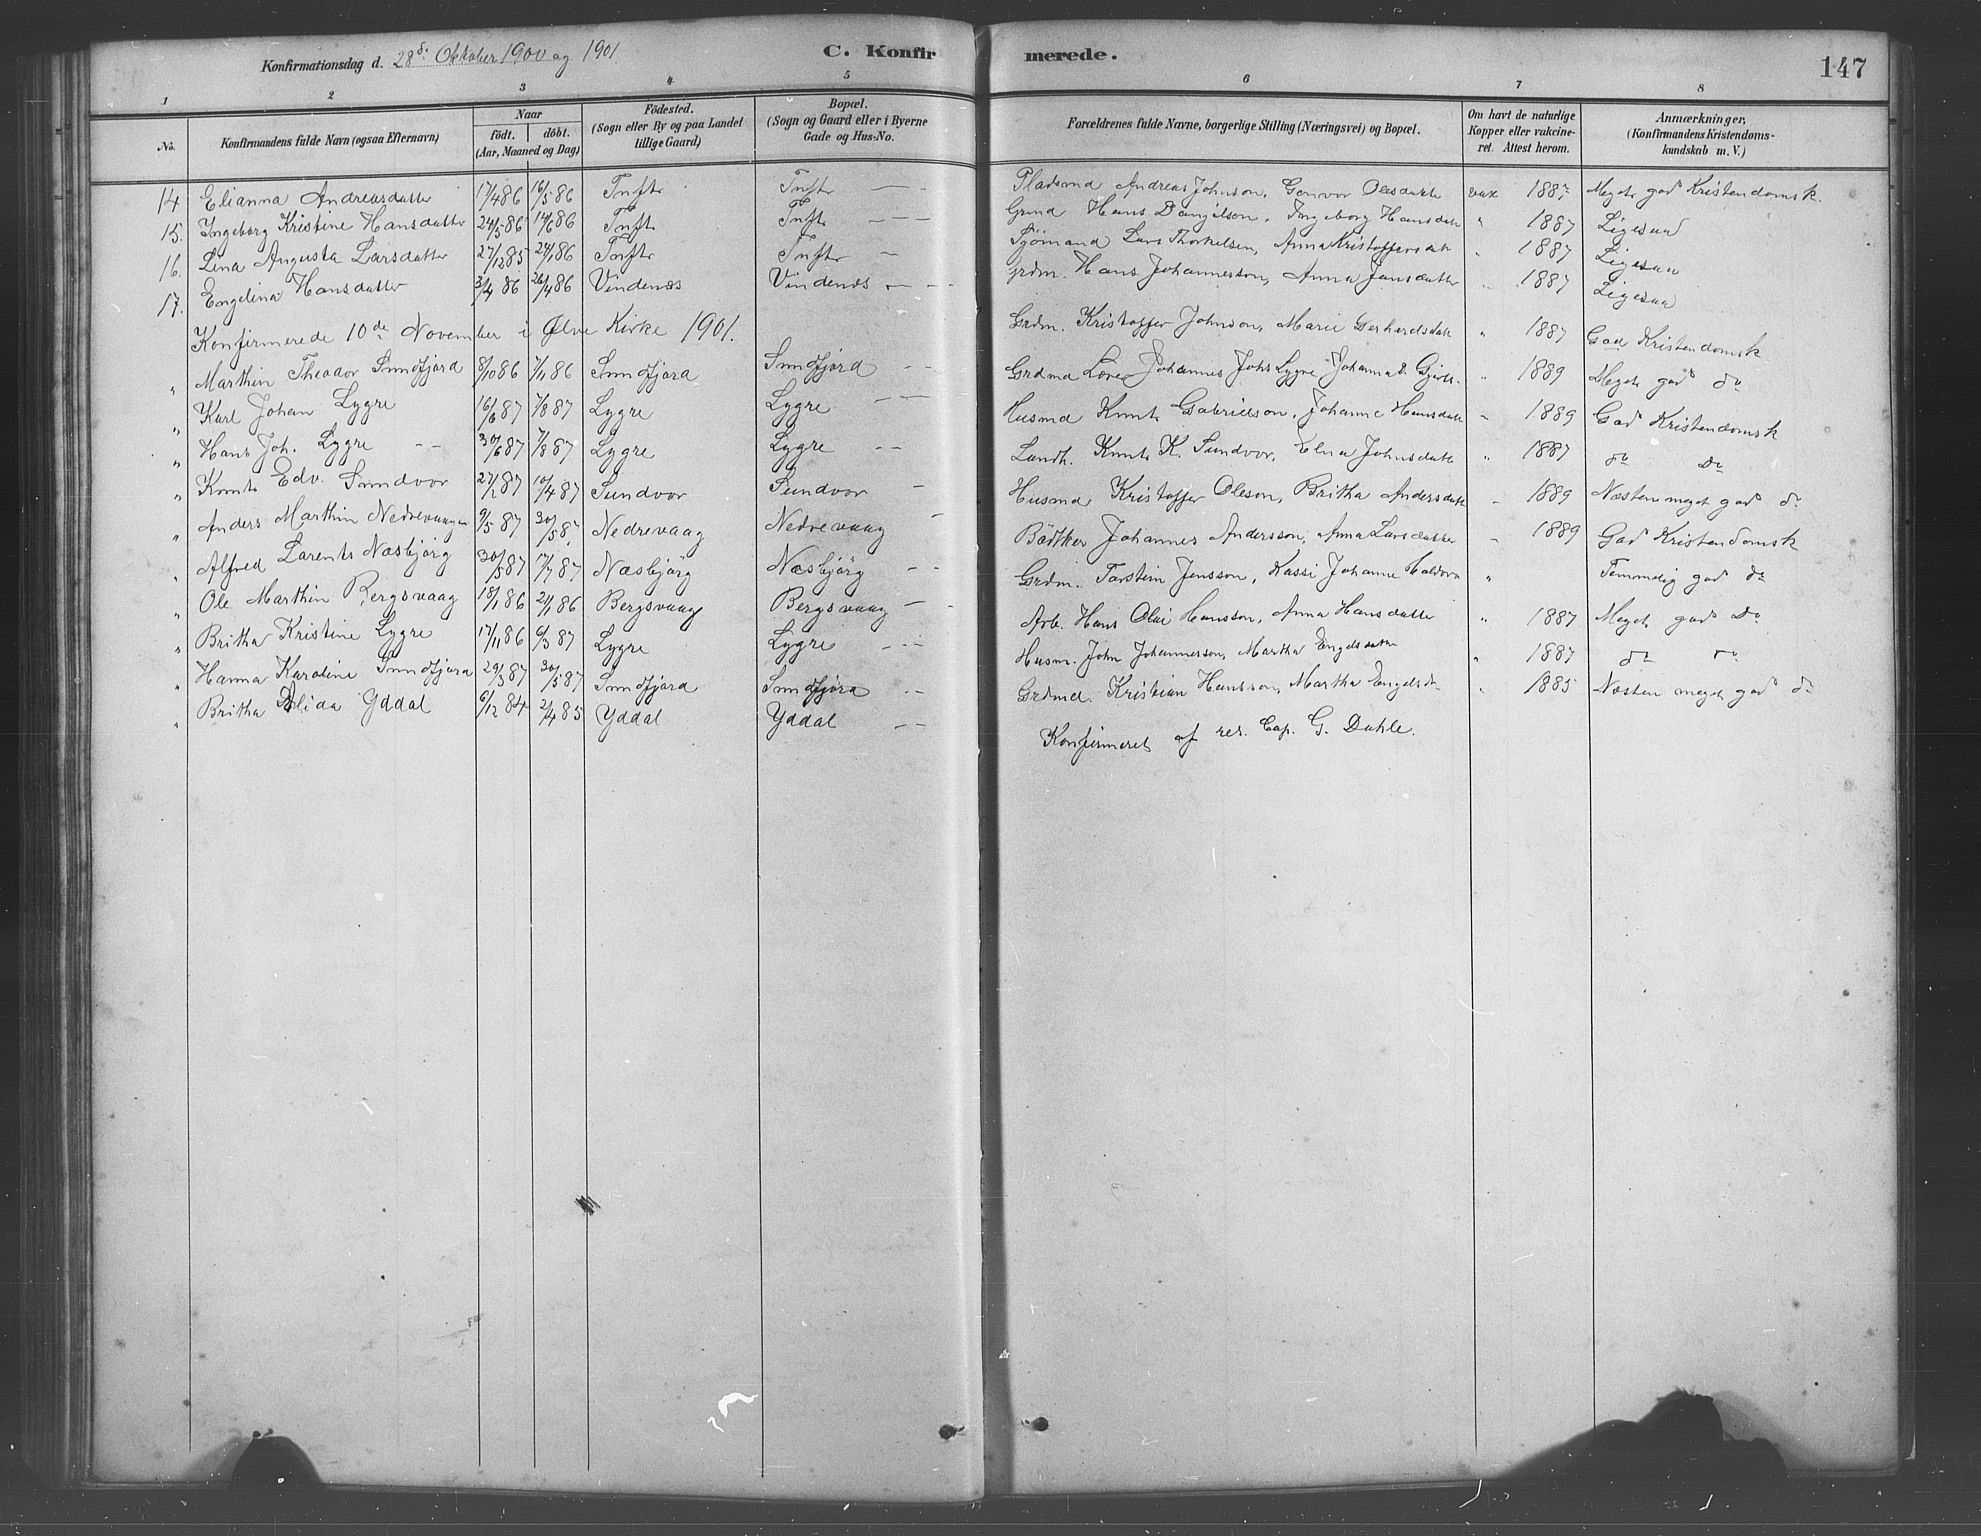 Konfirmationsdag d. 28d. Oktober 1900 og 1901 C. Konfirmerede. 147
1 2 3 4 5 6 7 8
No. Konfirmandens fulde Navn (ogsaa Efternavn) Naar födt. döbt. (Aar, Maaned og Dag) Födested. (Sogn eller By og paa Landet tillige Gaard) Bopæl. (Sogn og Gaard eller i Byerne Gade og Hus-No. Forældrenes fulde Navne, borgerlige Stilling (Næringsvei) og Bopæl. Om havt de naturlige Kopper eller vakcineret. Attest herom. Anmærkninger, (Konfirmandens Kristendomskundskab m. V.)
14 Elianna Andreasdatter 17/4 86 16/5 86 Tufte Tufte — - Pladsmd Andreas Johnson, Gonvor Olesdatte vax 1887 Meget god Kristendomsk.
15. Ingeborg Kristine Hansdatter 24/5 86 14/6 86 Tufte Tufte — - - Grmd Hans Danielson, Ingeborg Hansdatt " 1887 Ligesaa
16. Lina Augusta Larsdatter 27/12 85 24/1 86 Tufte Tufte — Sjömand Lars Thorkelsen, Anna Kristoffersdatt " 1887 Ligesaa
17. Engelina Hansdatter 3/4 86 26/4 86 Vindenæs Vindenæs — - - grdm. Hans Johannesson, Anna Jansdatter " 1887 Ligesaa
Konfirmerede 10de November i Ølve Kirke 1901.
" Marthin Theodor Sundfjord 8/10 86 7/11 86 Sundfjord Sundfjord - - Grdm. Kristoffer Johnson, Marie Gerhardsdatt " 1887 God Kristendomsk
" Karl Johan Lygre 16/6 87 7/8 87 Lygre Lygre — — Grdmd Johannes Johs Lygre Johanna " 1889 Meget god do
" Hans Joh. Lygre — 30/6 87 7/8 87 Lygre Lygre — - Husmd Knut Gabrielson, Johanne Hansdatt " 1889 God Kristendomsk
" Knut Edv. Sundvor 27/2 87 10/4 87 Sundvor Sundvor — Landh. Knut K. Sundvor, Elna Johnsdatt " 1887 do Do
" Anders Marthin Nedrevaagen 9/5 87 30/5 87 Nedrevaag Nedrevaag — Husmd Kristoffer Oleson, Britha Andersdatt " 1889 Næsten meget god do
" Alfred Larents Næsbjörg 30/5 87 17/7 87 Næsbjörg Næsbjörg - - Bödtker Johannes Andersson, Anna Larsdatter " 1889 God Kristendomsk
" Ole Marthin Bergsvaag 18/1 86 21/1 86 Bergsvaag Bergsvaag — - Grdm. Torstein Jensson, Kassi Johanne " Temmelig god do
" Britha Kristine Lygre 17/11 86 6/3 87 Lygre Lygre — - Arb. Hans Olai Hansson, Anna Hansdatter " 1887 Meget god Do
" Hanna Karoline Sundfjord 29/3 87 30/5 87 Sundfjord Sundfjord — Husm. John Johannesson, Martha Engelsdatter " 1887 do do
" Britha Alida Yddal 6/12 84 2/4 85 Yddal Yddal — - Grdmd. Kristian Hansson, Martha Engelsd. " 1885 Næsten meget god do
Konfirmeret af res. Cap. G. Dahle.